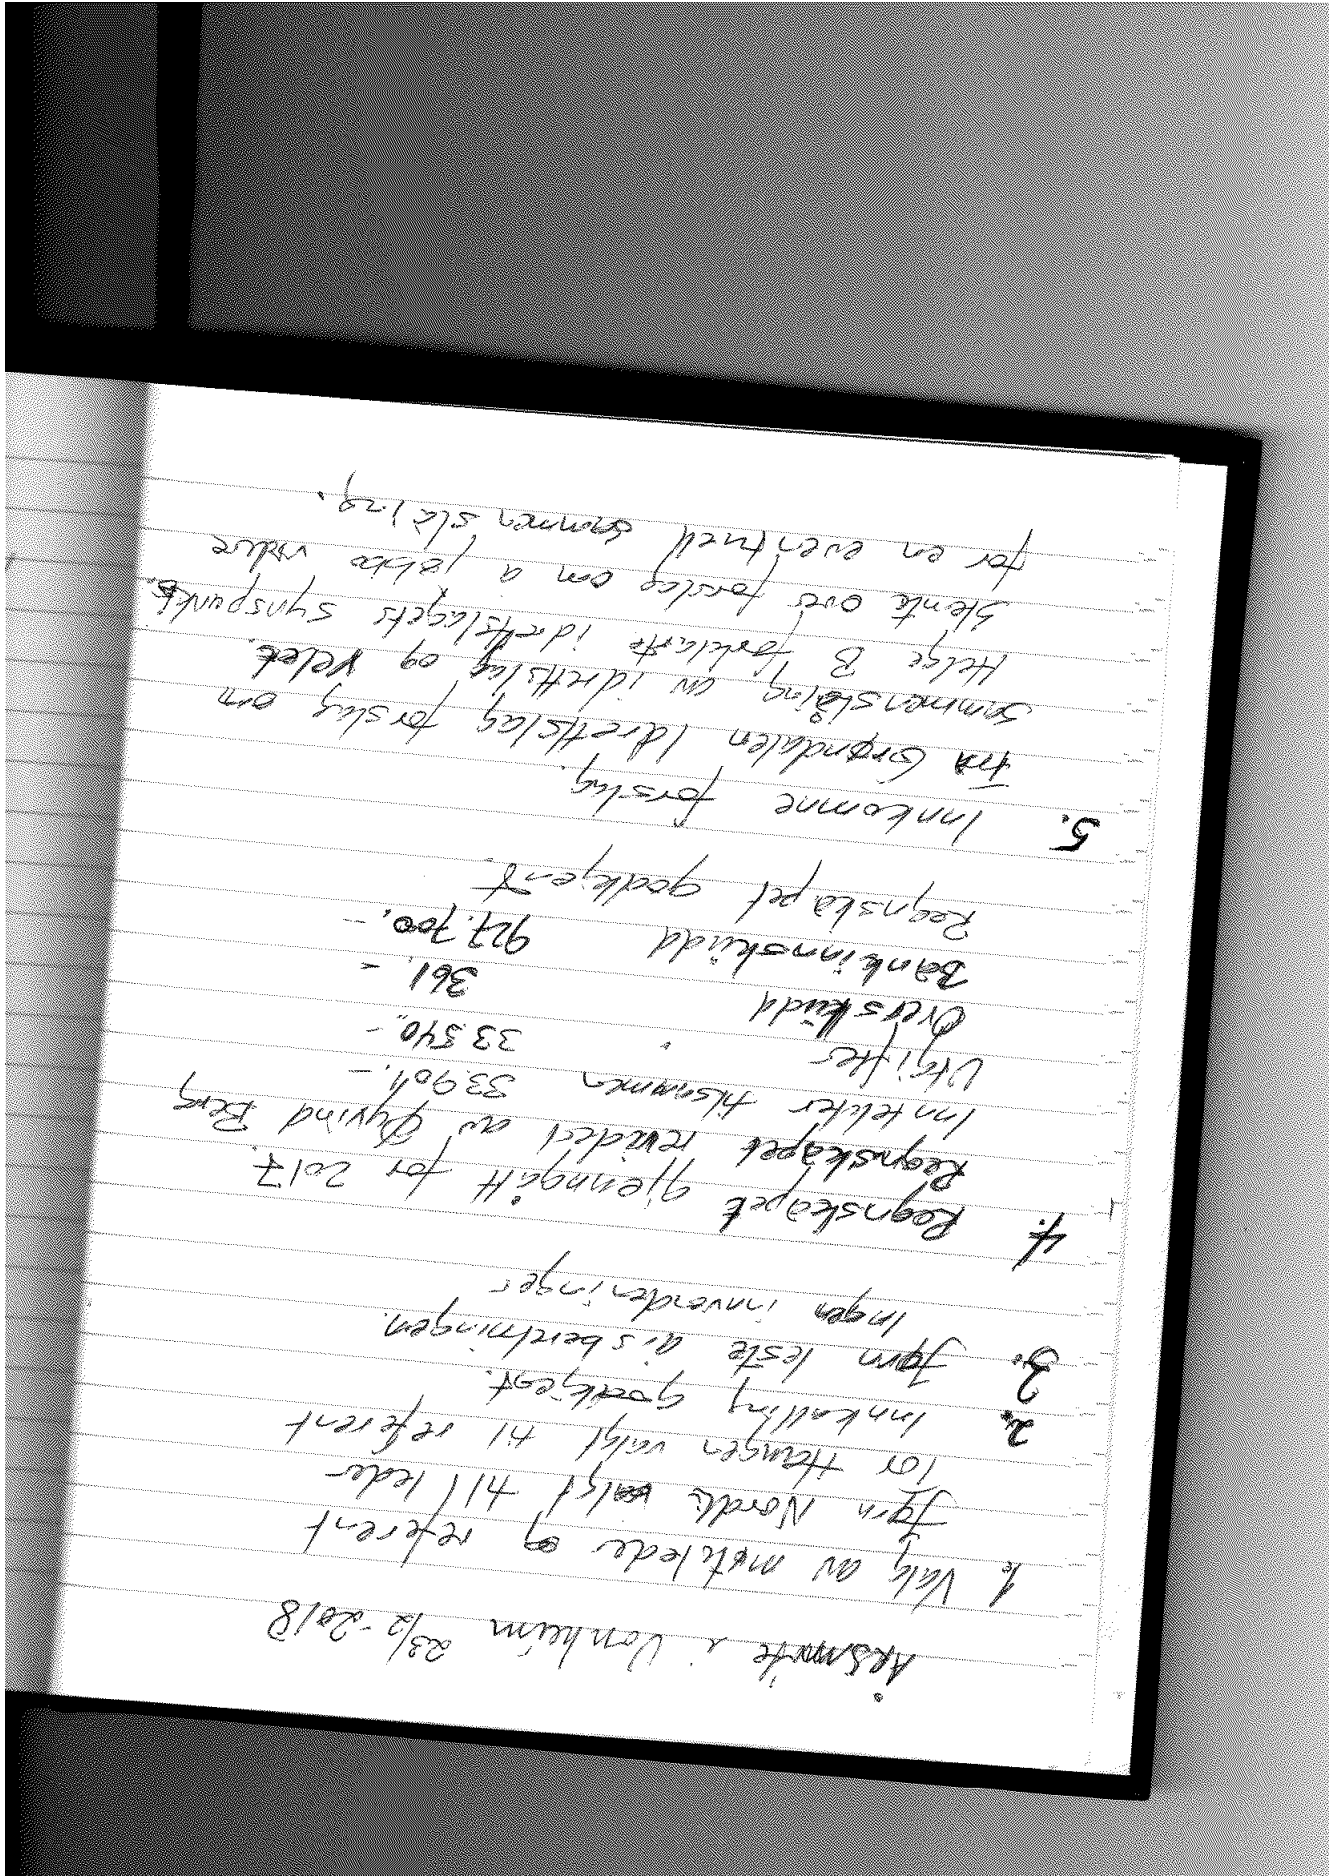 Årsmøte i Vonheim 23/2-2018
1. Valg av møtelede og referent
Jørn Nordli valgt till leder
Tor Haugen valgt til referent
2. Innkalling godkjent.
3. Jørn leste årsberetningen.
Ingen innvendinger
4. Regnskapet gjenngått for 2017.
Regnskapet revidert av Øyvind Berg
Inntekter tilsammen 33.901.-
Utgifter " 33.540.-
Overskudd 361.-
Bankinnskudd 927.700.-
Regnskapet godkjent.
5. Innkomne forslag.
Fra Grøndalen Idrettslag forslag om
sammenslåing av idrettslag og velet.
Helge B forklarte idrettslagets synspunkt.
Stemte over forslag om å jobbe videre
for en eventuell sammenslåing.